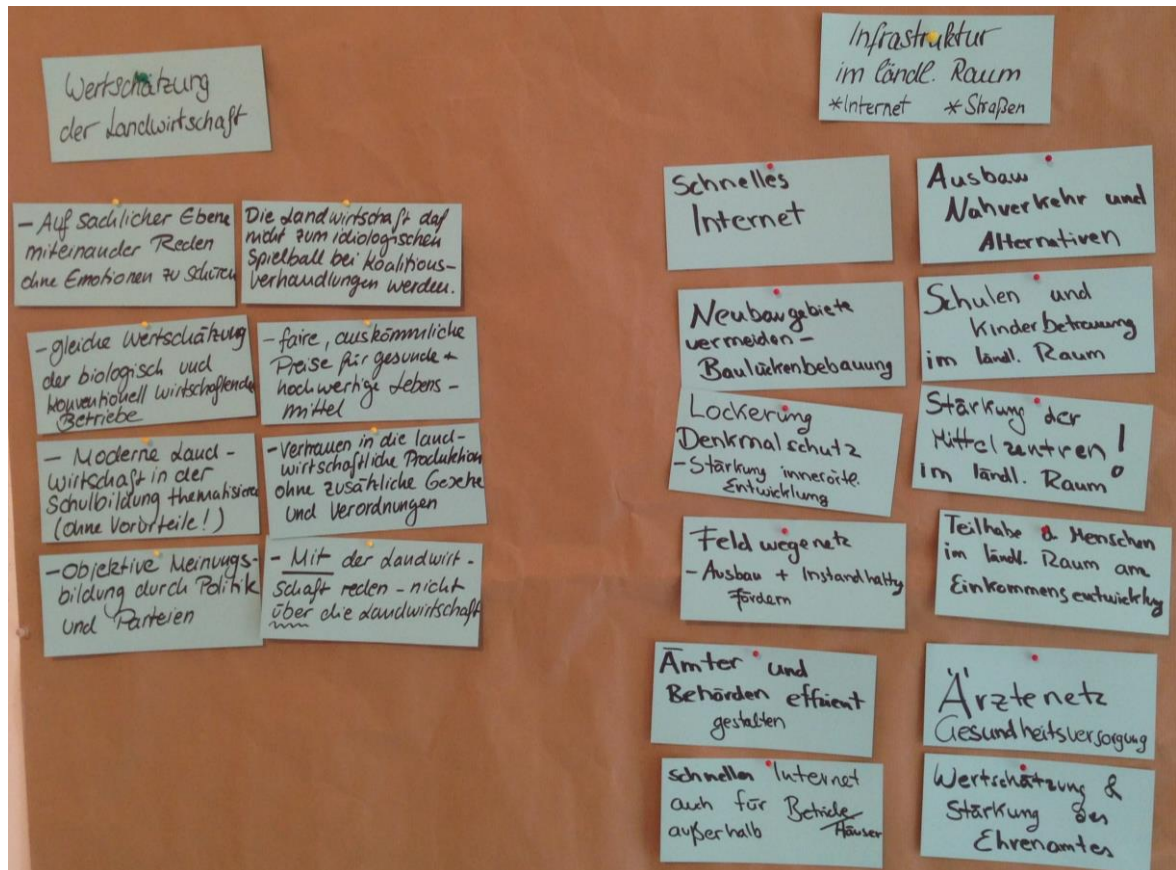 Wertschätzung
der Landwirtschaft
- Auf sachlicher Ebene
miteinander Reden
ohne Emotionen zu schüren
Die Landwirtschaft daf
nicht zum idiologischen
Spielball bei Koalitions-
verhandlungen werden.
- gleiche Wertschätzung
der biologisch und
konventionell wirtschaftenden
Betriebe
- faire, auskömmliche
Preise für gesunde +
hochwertige Lebens-
mittel
- Moderne Land-
wirtschaft in der
Schulbildung thematisieren
(ohne Vorurteile!)
- Vertrauen in die land-
wirtschaftliche Produktion
ohne zusätzliche Gesetze
und Verordnungen
- Objektive Meinungs-
bildung durch Politik
und Parteien
- Mit der Landwirt-
schaft reden - nicht
über die Landwirtschaft
Infrastruktur
im ländl. Raum
*Internet *Straßen
Schnelles
Internet
Ausbau
Nahverkehr und
Alternativen
Neubaugebiete
vermeiden -
Baulückenbebauung
Schulen und
Kinderbetreuung
im ländl. Raum
Lockerung
Denkmalschutz
- Stärkung innerörtl.
Entwicklung
Stärkung der
Mittelzentren!
im ländl. Raum
Feldwegenetz
- Ausbau + Instandhaltg
fördern
Teilhabe d. Menschen
im ländl. Raum am
Einkommensentwicklg
Ämter und
Behörden effizient
gestalten
Ärztenetz
Gesundheitsversorgung
schnelles Internet
auch für Betriebe/
außerhalb Häuser
Wertschätzung &
Stärkung des
Ehrenamtes